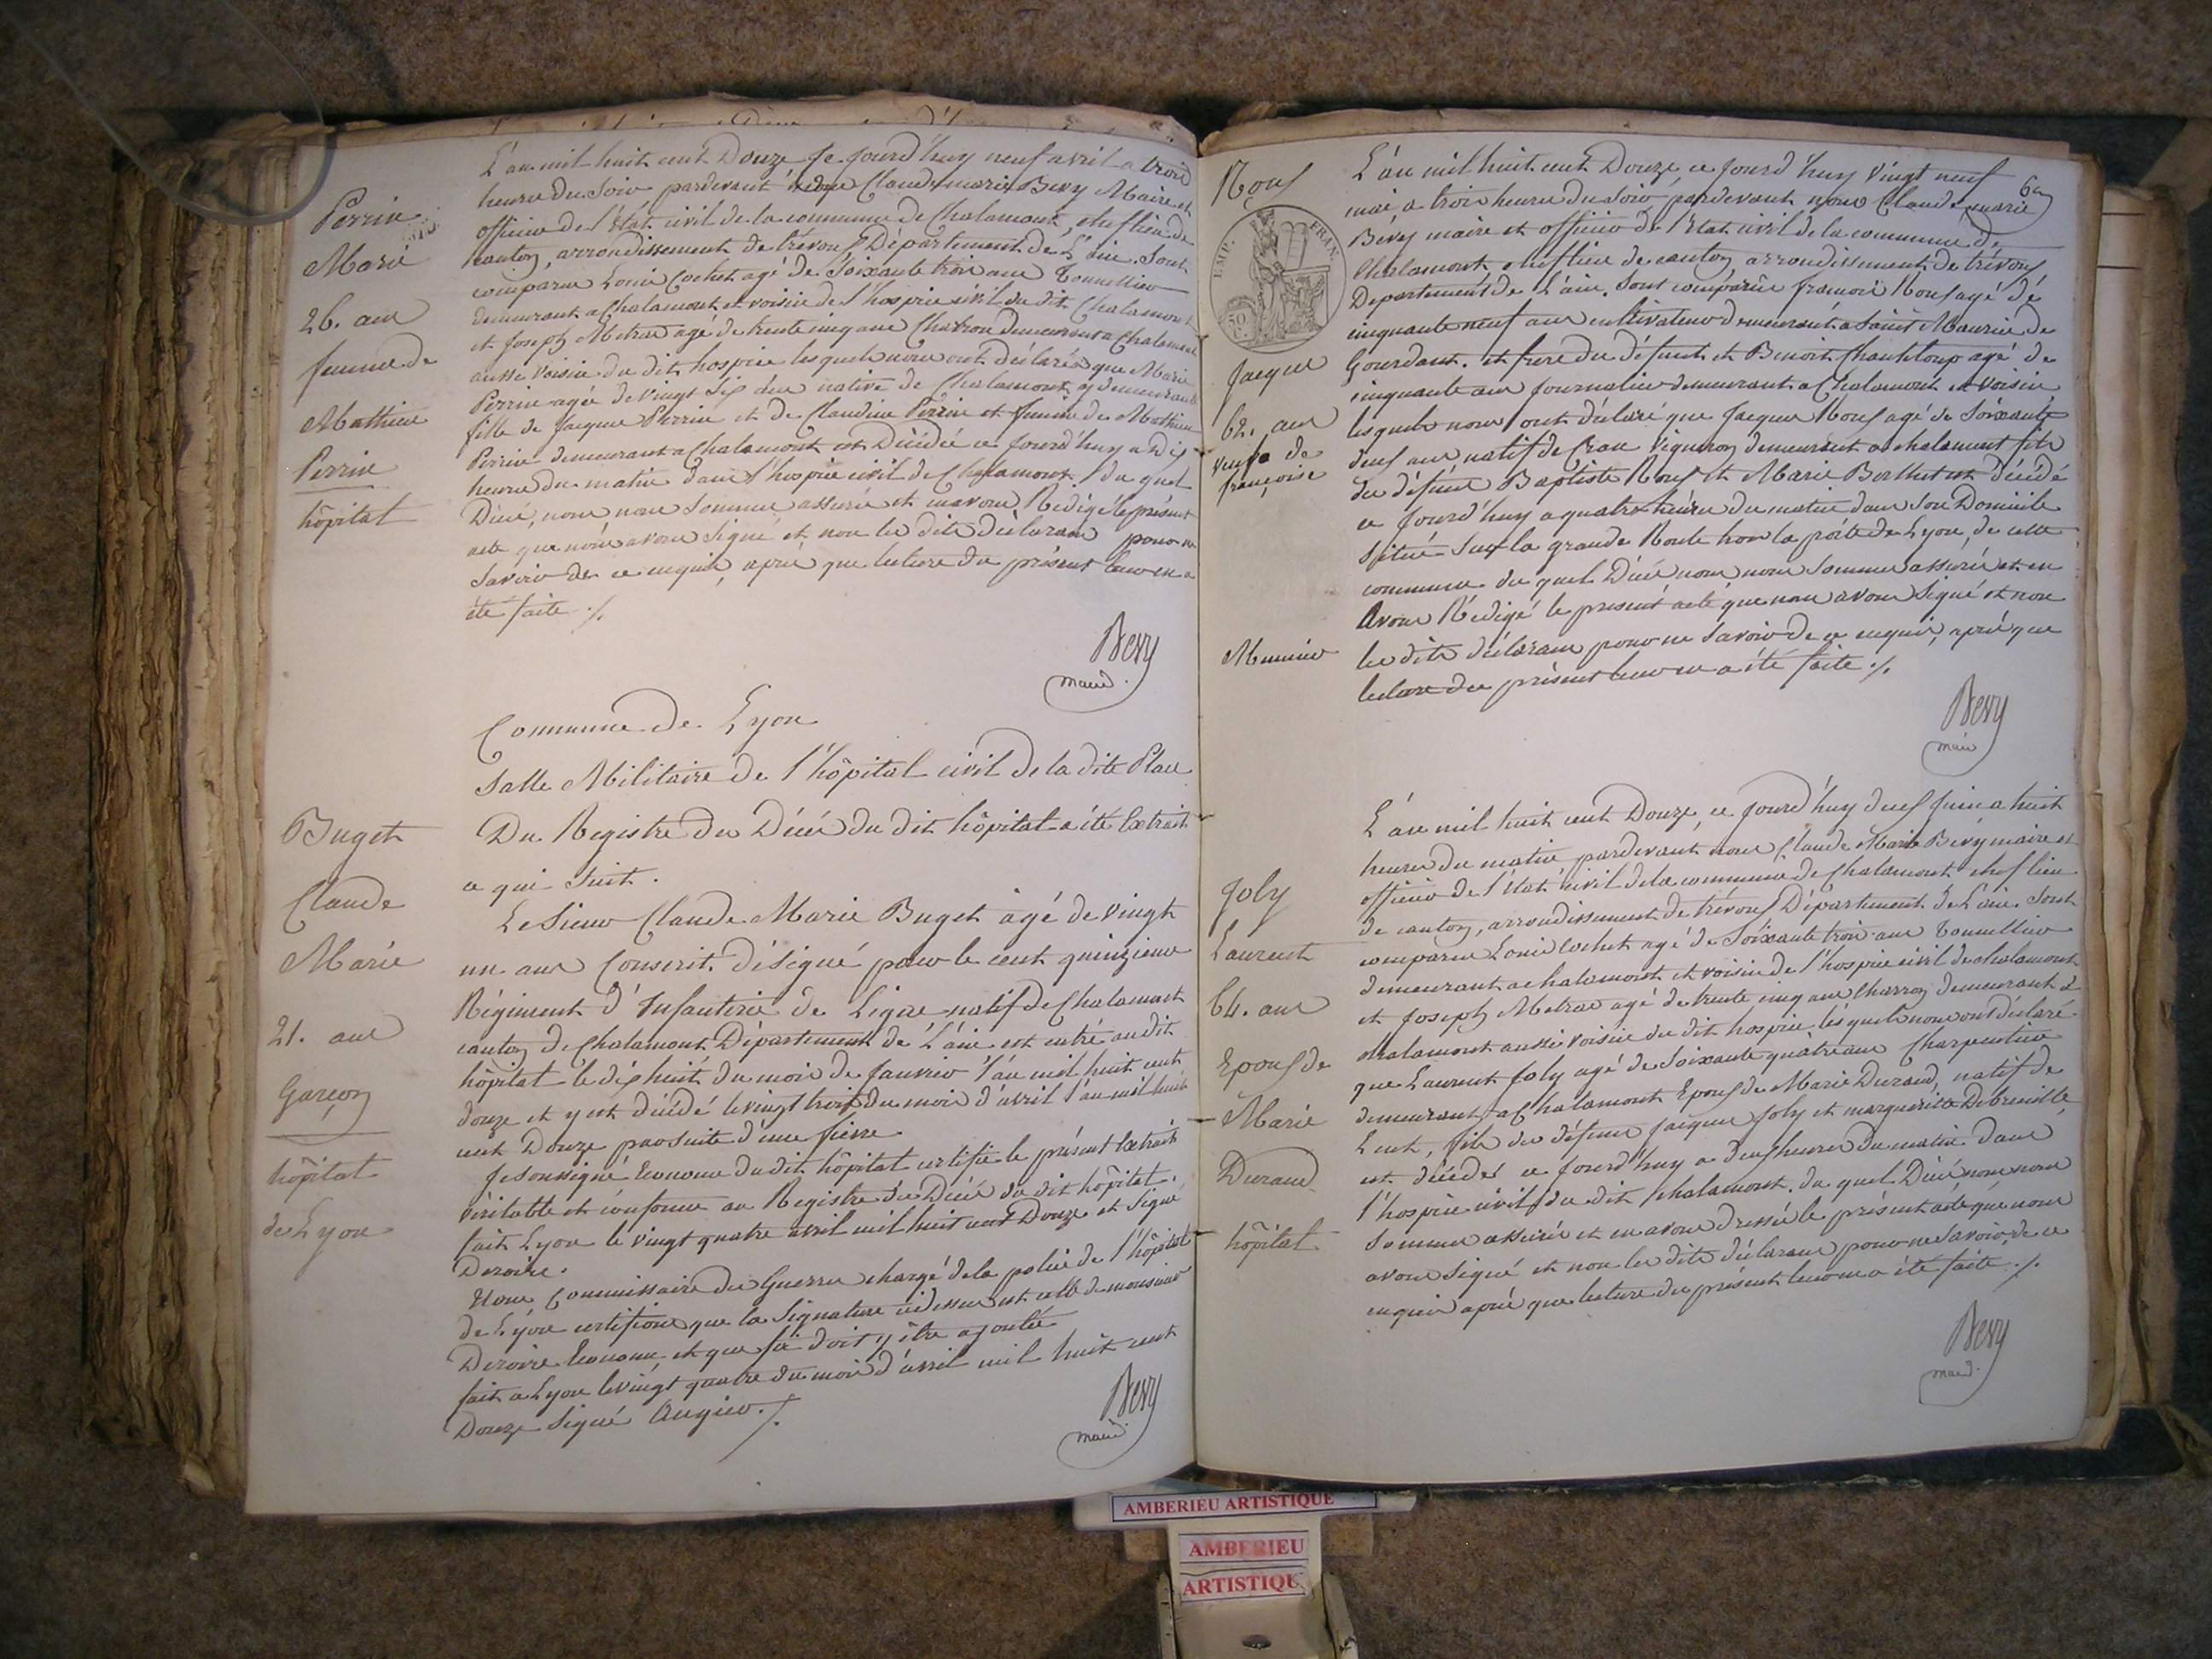 Perrin
Marie
26. ans
femme de
Mathieu
Perrin
hôpital
L'an mil huit cent Douze ce jourd'huy neuf avril a trois
heures du soir pardevant nous Claude marie Bevy Maire et
officier de l'état civil de la commune de Chalamont, chef lieu de
canton, arrondissement de trévoux Département de L'ain. Sont
comparus Louis Cochet agé de soixante trois ans Tonnellier
demeurant a Chalamont et voisin de l'hospice civil du dit Chalamont
et Joseph Metras agé de trente cinq ans Charron demeurant a Chalamont
aussi voisin du dit hospice lesquels nous ont déclarés que Marie
Perrin agée de vingt six ans native de Chalamont y demeurant
fille de Jacques Perrin et de Claudine Perrin et femme de Mathieu
Perrin demeurant a Chalamont est Décédée ce jourd'huy a Dix
heures du matin dans l'hospice civil de Chalamont, du quel
Décé, nous nous sommes assurés et en avons Redigé le présent
acte que nous avons Signé et non les dits déclarans pour ne
savoir de ce enquis, après que lecture du présent leur en a
été faite ./.
Bevy
maire
Buget
Claude
Marie
21. ans
Garçon
hôpital
de Lyon
Commune de Lyon
Salle Militaire de l'hôpital civil de la dite Place
Du Registre des Décés du dit hôpital a été Extrait
ce qui suit.
Le Sieur Claude Marie Buget agé de vingt
un ans Conscrit, désigné pour le cent quinzieme
Régiment d'Infanterie de Ligne natif de Chalamont
canton de Chalamont Département de L'ain est entré au dit
hôpital le dix huit du mois de Janvier l'an mil huit cent
douze et y est décédé le vingt trois du mois d'avril l'an mil huit
cent Douze par suite d'une fievre
Je soussigné Econome du dit hôpital certifie le présent Extrait
véritable et conforme au Registre des Décés du dit hôpital.
fait Lyon le vingt quatre avril mil huit cent Douze et Signé
Deroire.
Nous Commissaire des Guerres chargé de la police de l'hôpital
de Lyon certifions que la Signature ci dessus est celle de monsieur
Deroire Econome, et que foi doit y être ajoutée
fait a Lyon le vingt quatre du mois d'avril mil huit cent
Douze Signé Augier. /.
Bevy
maire
60
Roux
EMP. FRAN.
50 C.
Jacques
62. ans
veuf de
françoise
Meunier
L'an mil huit cent Douze ce jourd'huy vingt neuf
mai, a trois heures du soir, pardevant nous Claude marie
Bevy maire et officier de l'Etat civil de la commune de
Chalamont, chef lieu de canton arrondissement de trévoux
Département de L'ain. Sont comparûs françois Roux agé de
cinquante neuf ans cultivateur demeurant a Saint Maurice de
Gourdans. et frere du défunt et Benoit Chanteloup agé de
cinquante ans Journalier demeurant a Chalamont et voisin
lesquels nous ont déclaré que Jacques Roux agé de Soixante
deux ans natif de Cran Vigneron demeurant a chalamont fils
de défunt Baptiste Roux et Marie Berthet est décédé
ce jourd'huy a quatre heures du matin dans son Domicile
situé Sur la grande Route hors la porte de Lyon, de cette
commune du quel Décé, nous nous sommes assurés et en
Avons Rédigé le présent acte que nous avons Signé et non
les dits déclarans pour ne savoir de ce enquis, après que
lecture du présent leur en a été faite ./.
Bevy
maire
Joly
Laurent
64. ans
Epoux de
Marie
Durand
hôpital
L'an mil huit cent Douze, ce jourd'huy deux Juin a huit
heures du matin pardevant nous Claude Marie Bevy maire et
officier de l'état civil de la commune de Chalamont chef lieu
de canton, arrondissement de trévoux Département de L'ain. Sont
comparus Louis Cochet agé de Soixante trois ans Tonnellier
demeurant a chalamont et voisin de l'hospice civil de chalamont
et Joseph Metras agé de trente cinq ans Charron demeurant a
chalamont aussi voisin du dit hospice, lesquels nous ont déclaré
que Laurent Joly agé de Soixante quatre ans Charpentier
demeurant a Chalamont Epoux de Marie Durand, natif de
Lent, fils de défunt Jacques Joly et marguerite Debreuille,
est décédé ce jourd'huy a deux heures du matin dans
l'hospice civil du dit chalamont. du quel Décé nous nous
sommes assurés et en avons dressé le présent acte que nous
avons signé et non les dits déclarans pour ne savoir, de ce
enquis après que lecture du présent leur en a été faite ./.
Bevy
maire
AMBERIEU ARTISTIQUE
AMBERIEU
ARTISTIQU